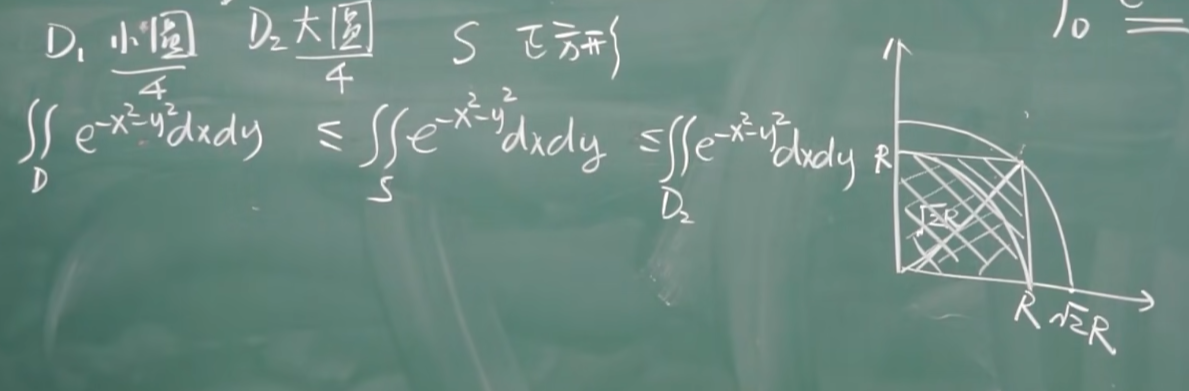 D₁ 小圆/4 D₂ 大圆/4 S 正方形
∬_D e^{-x²-y²}dxdy ≤ ∬_S e^{-x²-y²}dxdy ≤ ∬_{D₂} e^{-x²-y²}dxdy
R
√2R
R √2R